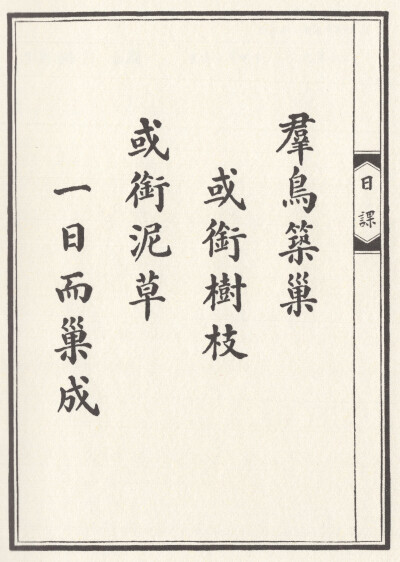 日課
羣鳥築巢
或銜樹枝
或銜泥草
一日而巢成